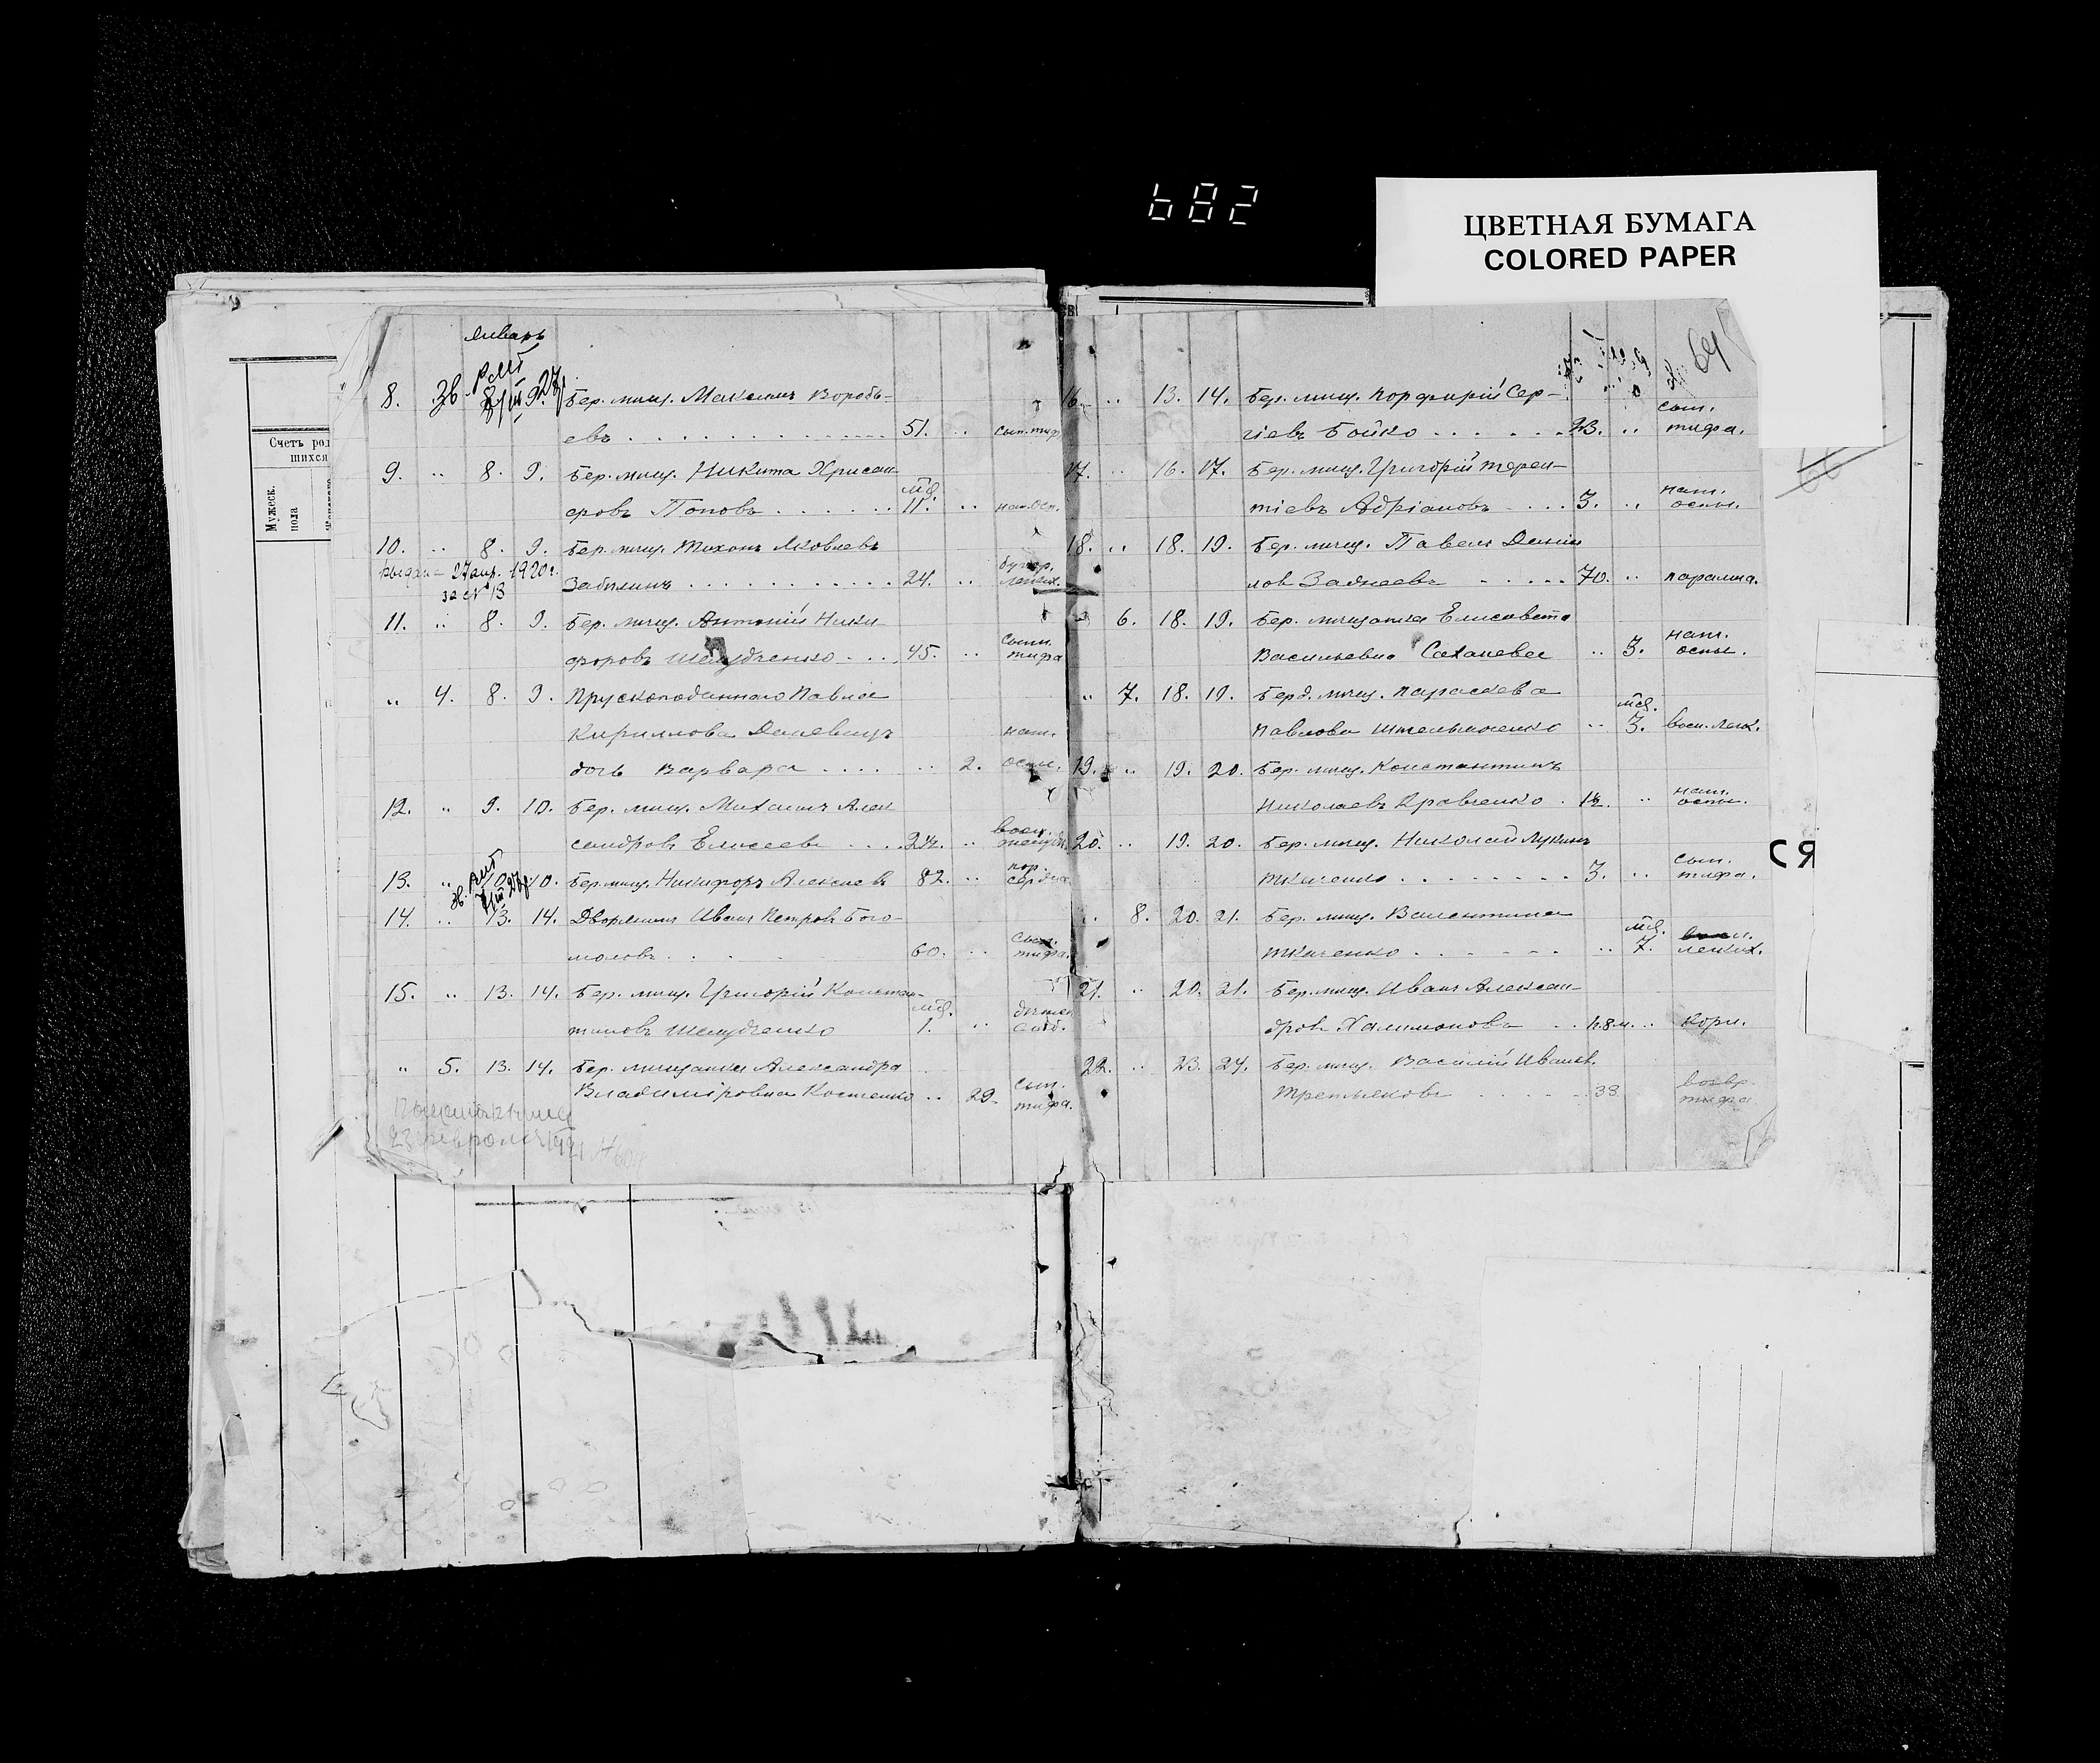 682
ЦВЕТНАЯ БУМАГА
COLORED PAPER
64
Счетъ рол
шихся
Мужеск.
пола
Январь
8. 8 9. Бер. мѣщ. Максимъ Воробь-
евъ 51. .. сып. тиф
9. .. 8. 9. Бер. мѣщ. Никита Хрисан-
мѣс.
ѳовъ Поповъ 11. .. нат. осп.
10. .. 8. 9. Бер. мѣщ. Тихонъ Яковлевъ
27 апр. 1920 г.
за № 13
24. .. легких.
11. .. 8. 9. Бер. мѣщ. Антоній Ники-
форовъ Шелудченко 45. .. сыпн. тифа
.. 4. 8. 9. Прускоподаннаго Павла
Кириллова
дочь Варвара .. 2. нат. оспы.
12. .. 9. 10. Бер. мѣщ. Михаилъ Алек
сандровъ Елисеевъ ..
13. .. 10. Бер. мѣщ. Никифоръ Алексѣевъ 82. .. пор. сердца
14. .. 13. 14. Дворянинъ Иванъ Петровъ Бого-
моловъ 60. .. сып. тифа.
15. .. 13. 14. Бер. мѣщ. Григорій Констан-
мѣс.
тиновъ Шелудченко 1. ..
.. 5. 13. 14. Бер. мѣщанка Александра
Владиміровна Костенко .. 29. сып. тифа.
16. .. 13. 14. Бер. мѣщ. Порфирій Сер-
гіевъ Бойко .. сып. тифа.
17. .. 16. 17. Бер. мѣщ. Григорій Терен-
тіевъ Адріановъ 3. .. нат. оспы.
18. .. 18. 19. Бер. мѣщ. Павелъ Дании
ловъ 70. .. паралича.
6. 18. 19. Бер. мѣщанка Елисавета
Васильевна .. 3. нат. оспы.
.. 7. 18. 19. Берд. мѣщ. Параскева
мѣс.
Павлова .. 3. восп. легк.
19. .. 19. 20. Бер. мѣщ. Константинъ
Николаевъ Кравченко .. нат. оспы.
20. .. 19. 20. Бер. мѣщ. Николай Лукинъ
Ткаченко 3. .. сып. тифа.
.. 8. 20. 21. Бер. мѣщ. Валентина
мѣс.
Ткаченко .. 7. легких.
21. .. 20. 21. Бер. мѣщ. Иванъ Алексан-
дровъ Халимоновъ ..
22. .. 23. 24. Бер. мѣщ. Василій Иванов.
Третьяковъ 33. возвр. тифа
СЯ